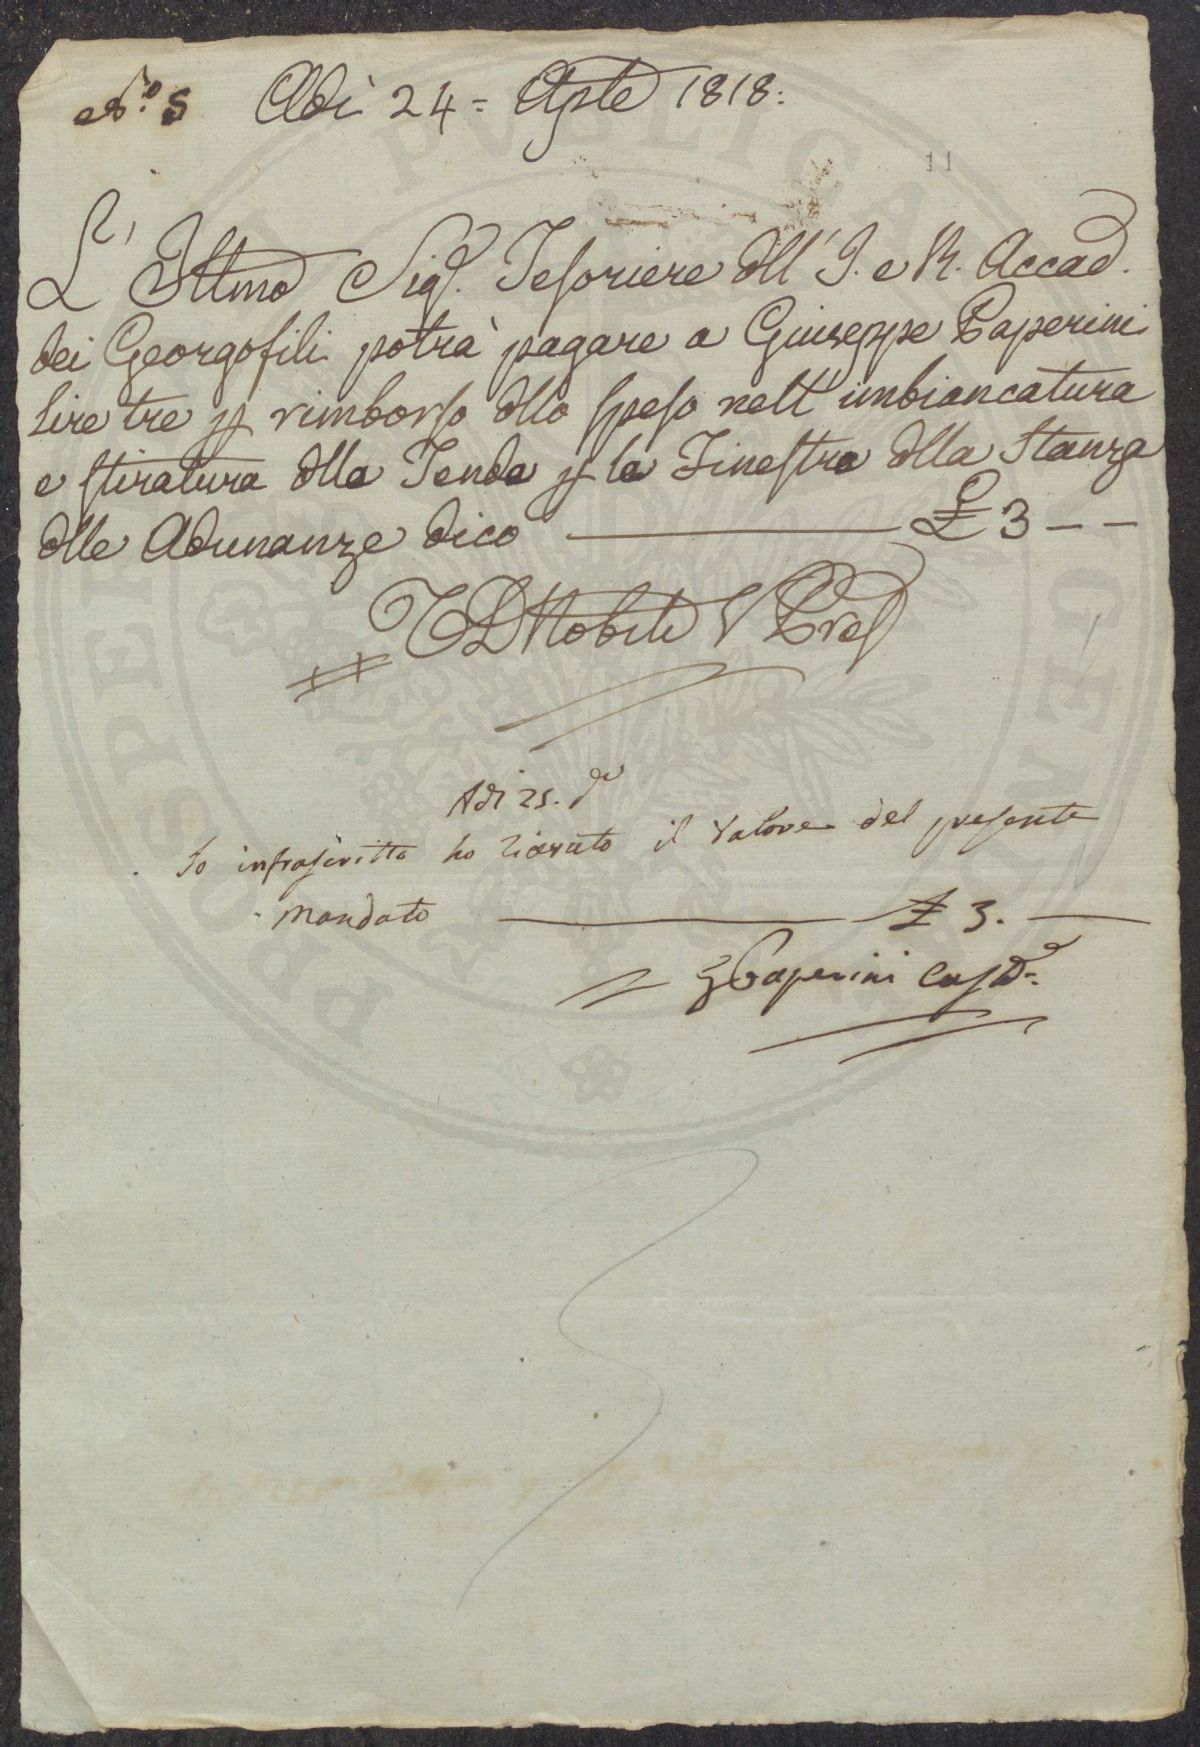 N.o 5 Adì 24 = Aple 1818:
11
L' Illmo Sigr. Tesoriere dll' I. e R. Accad.
dei Georgofili potrà pagare a Giuseppe Paperini
lire tre p rimborso dllo speso nell' imbiancatura
e stiratura dlla Tenda p la Finestra dlla Stanza
dlle Adunanze dico £ 3 – –
Nobili V Pres
Adì 25. do
Io infrascritto ho ricevuto il valore del presente
Mandato £ 3.
G Paperini Custde
PROSPERITATI PUBLICAE AUGENDAE